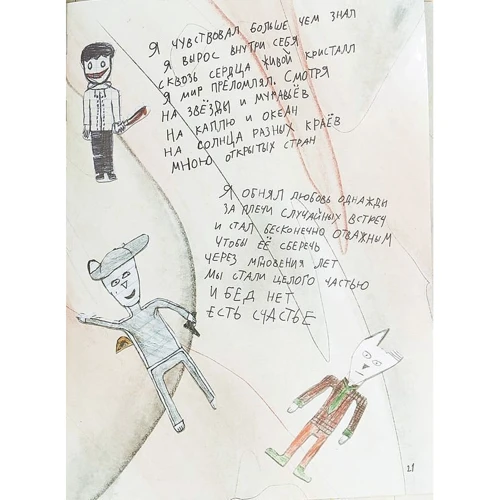 Я ЧУВСТВОВАЛ БОЛЬШЕ ЧЕМ ЗНАЛ
Я ВЫРОС ВНУТРИ СЕБЯ
СКВОЗЬ СЕРДЦА ЖИВОЙ КРИСТАЛЛ
Я МИР ПРЕЛОМЛЯЛ. СМОТРЯ
НА ЗВЁЗДЫ И МУРАВЬЁВ
НА КАПЛЮ И ОКЕАН
НА СОЛНЦА РАЗНЫХ КРАЁВ
МНОЮ ОТКРЫТЫХ СТРАН
Я ОБНЯЛ ЛЮБОВЬ ОДНАЖДИ
ЗА ПЛЕЧИ СЛУЧАЙНЫХ ВСТРЕЧ
И СТАЛ БЕСКОНЕЧНО ОТВАЖНЫМ
ЧТОБЫ ЕЁ СБЕРЕЧЬ
ЧЕРЕЗ МГНОВЕНИЯ ЛЕТ
МЫ СТАЛИ ЦЕЛОГО ЧАСТЬЮ
И БЕД НЕТ
ЕСТЬ СЧАСТЬЕ
21